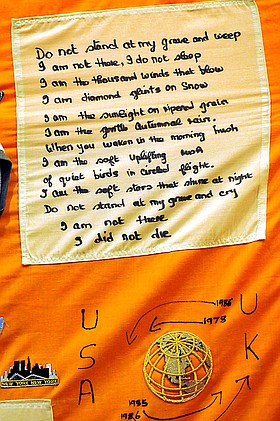 Do not stand at my grave and weep
I am not there, I do not sleep
I am the thousand winds that blow
I am diamond glints on Snow
I am the sunlight on ripened grain
I am the gentle Autumnal rain.
When you waken in the morning hush
I am the soft uplifting rush
of quiet birds in circled flight.
I am the soft stars that shine at night
Do not stand at my grave and cry
I am not there
I did not die
USA
UK
1978
1985
1986
NEW YORK NEW YORK